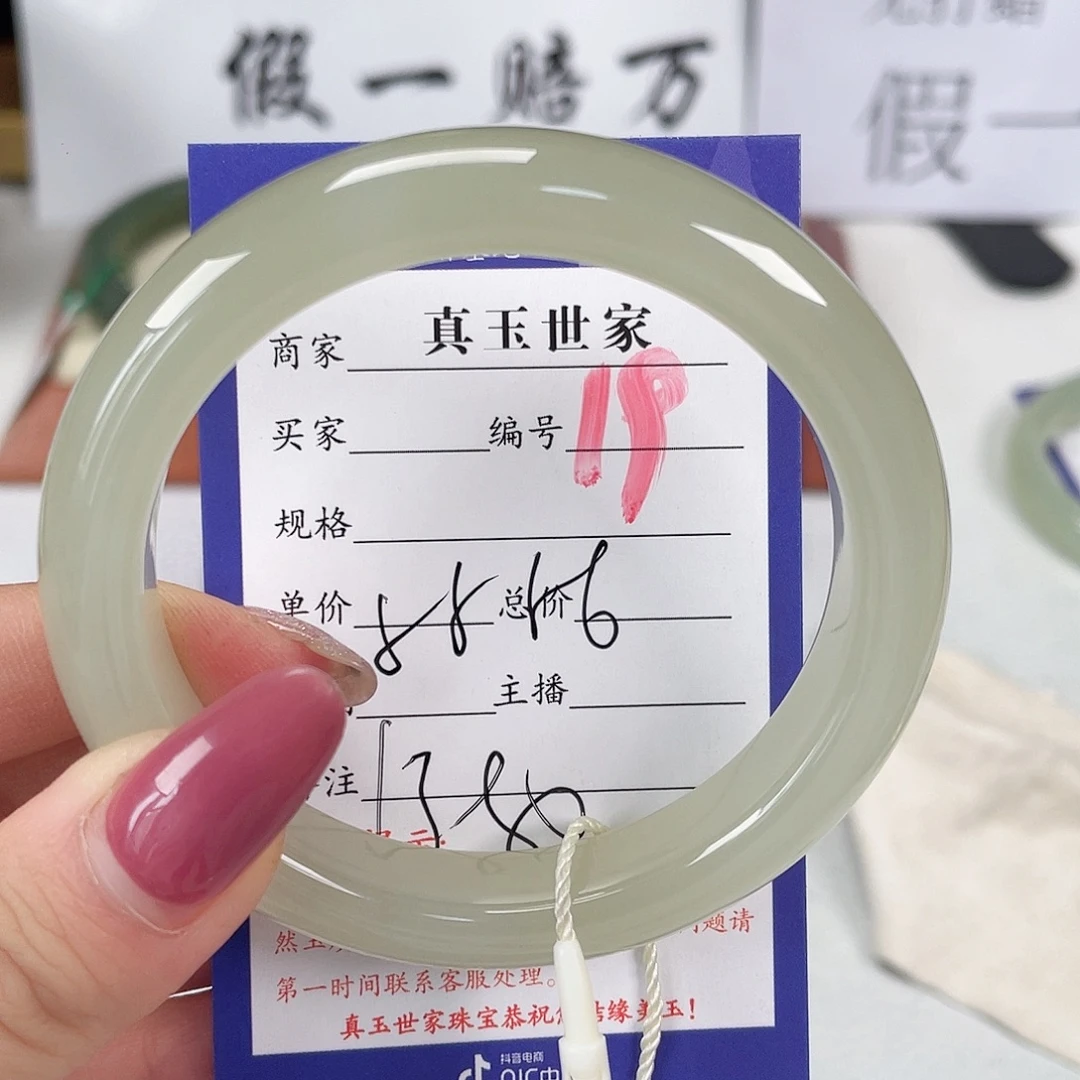 假一赔万
假一
商家 真玉世家
买家 编号 19
规格
单价 88 总价 16
主播
注 1380
提示:
题请
第一时间联系客服处理。
真玉世家珠宝恭祝 结缘美玉!
抖音电商